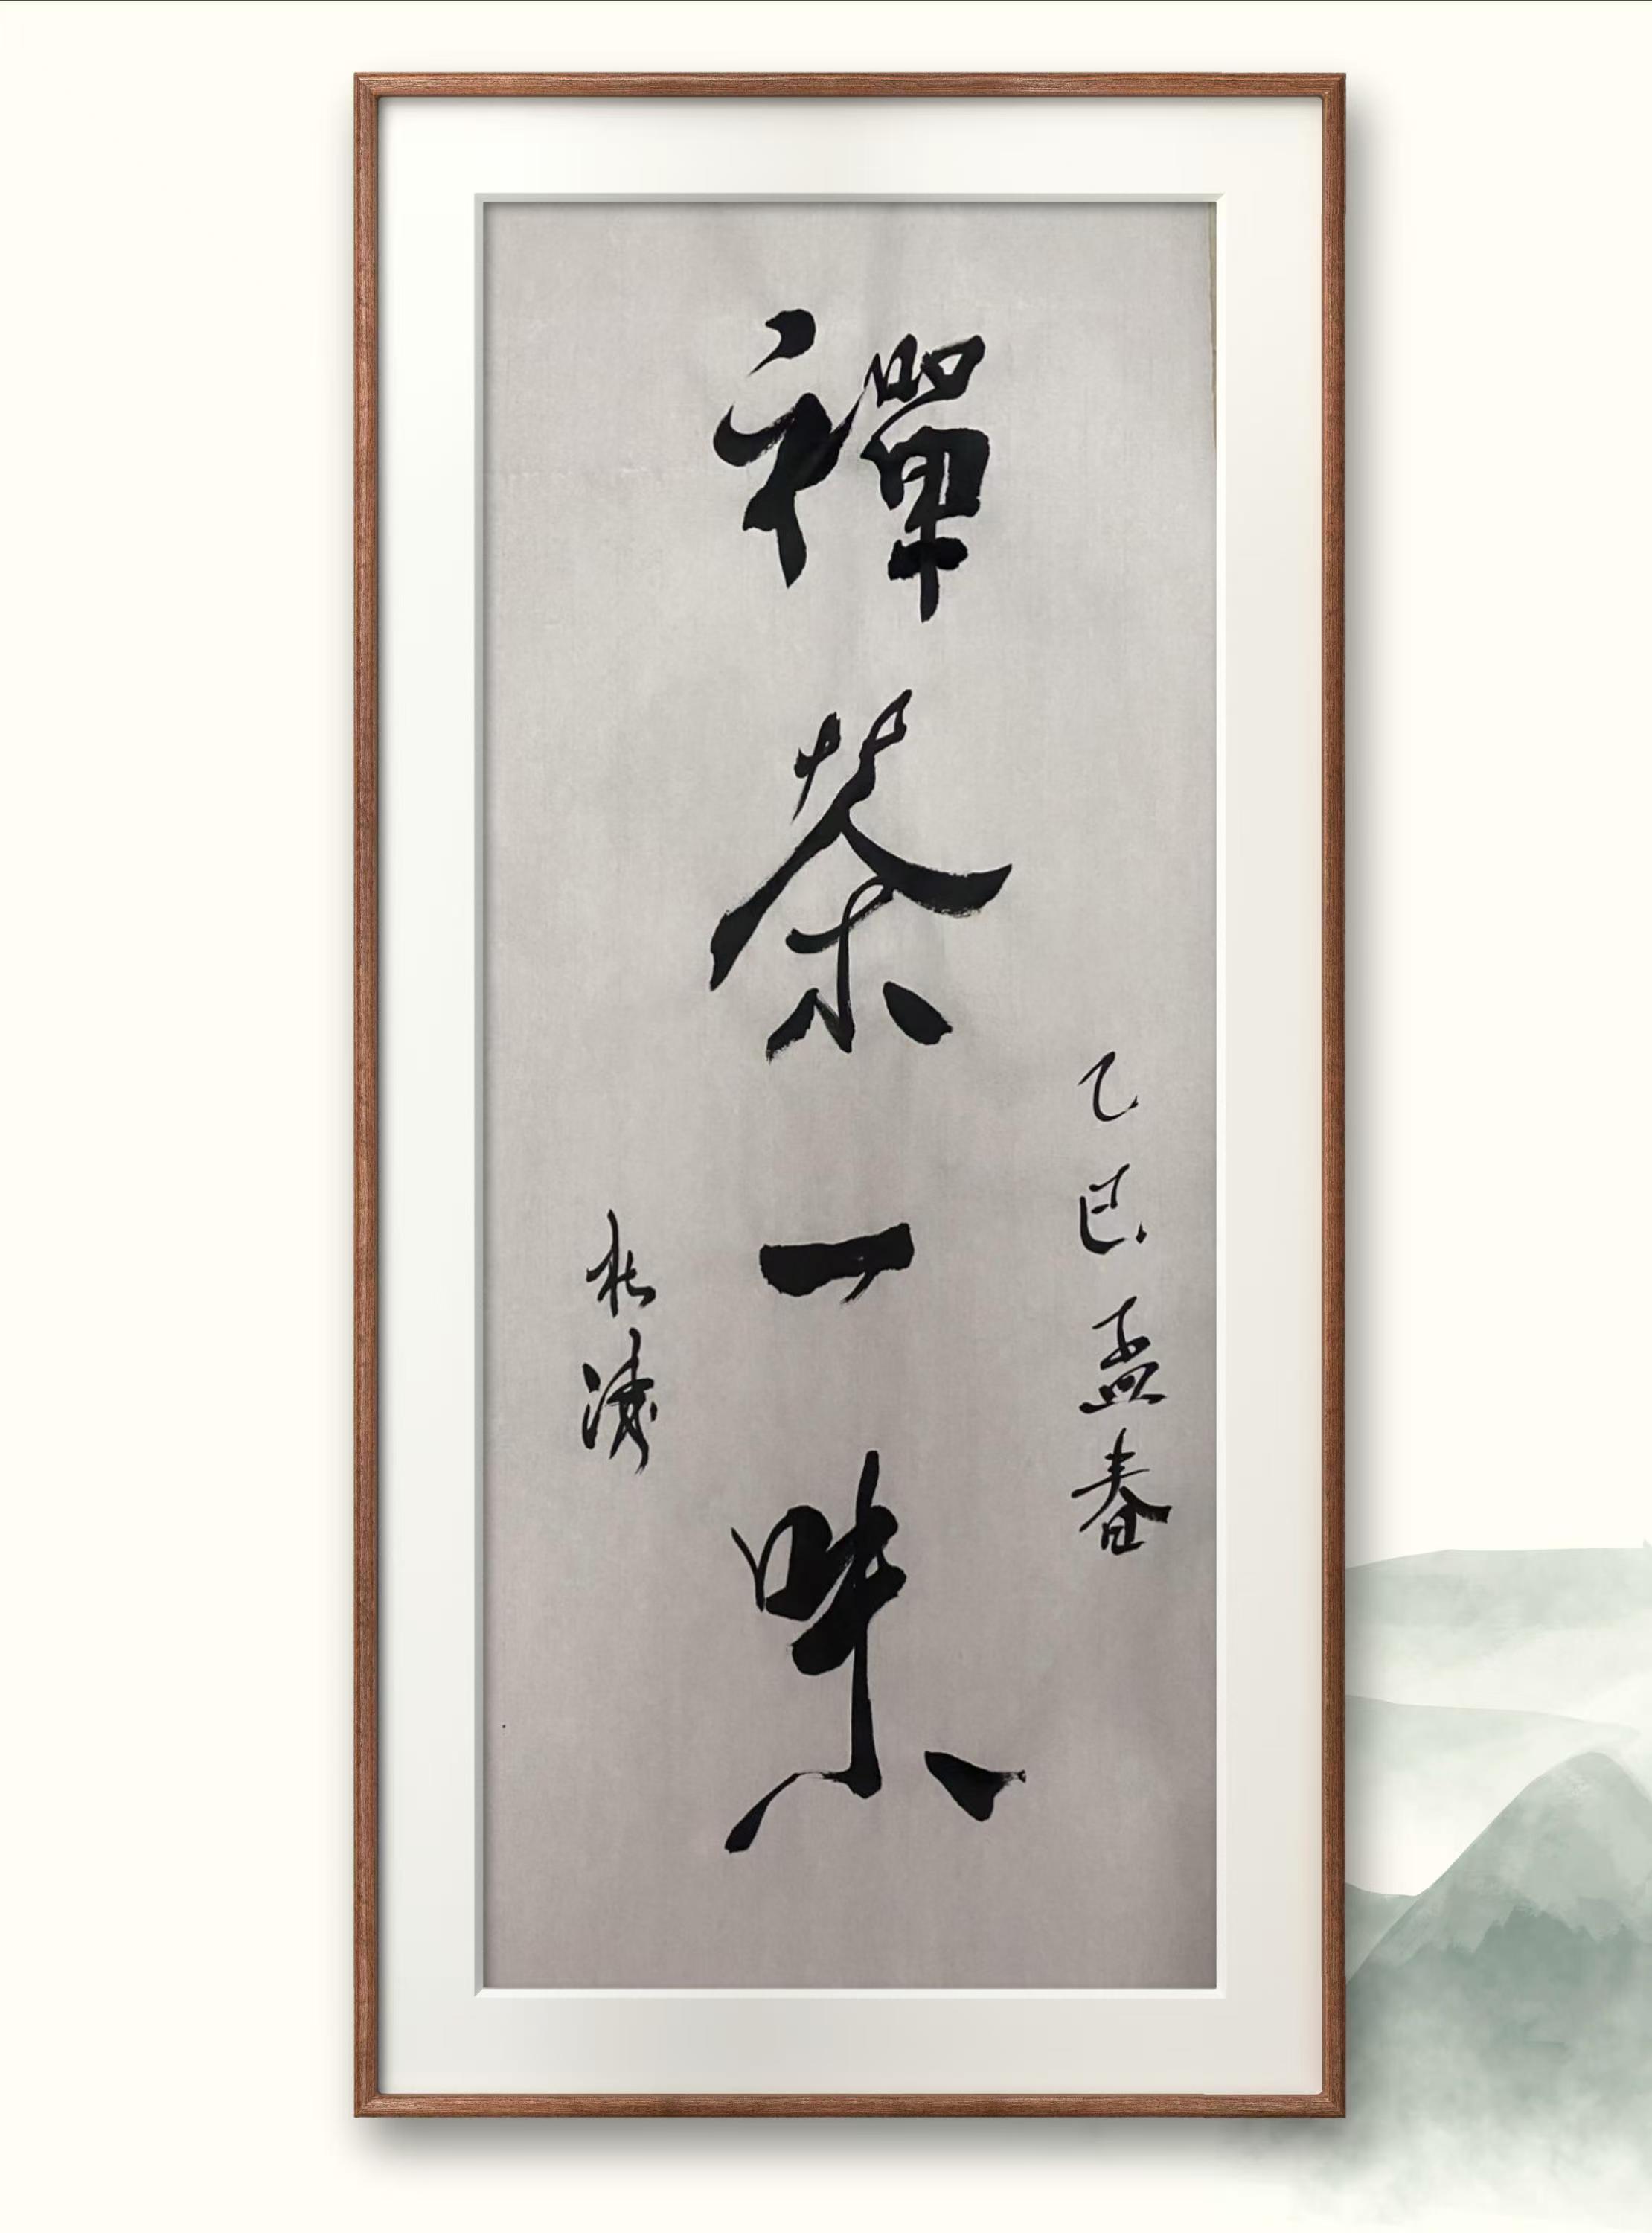 乙巳孟春
禪茶一味
杜涛